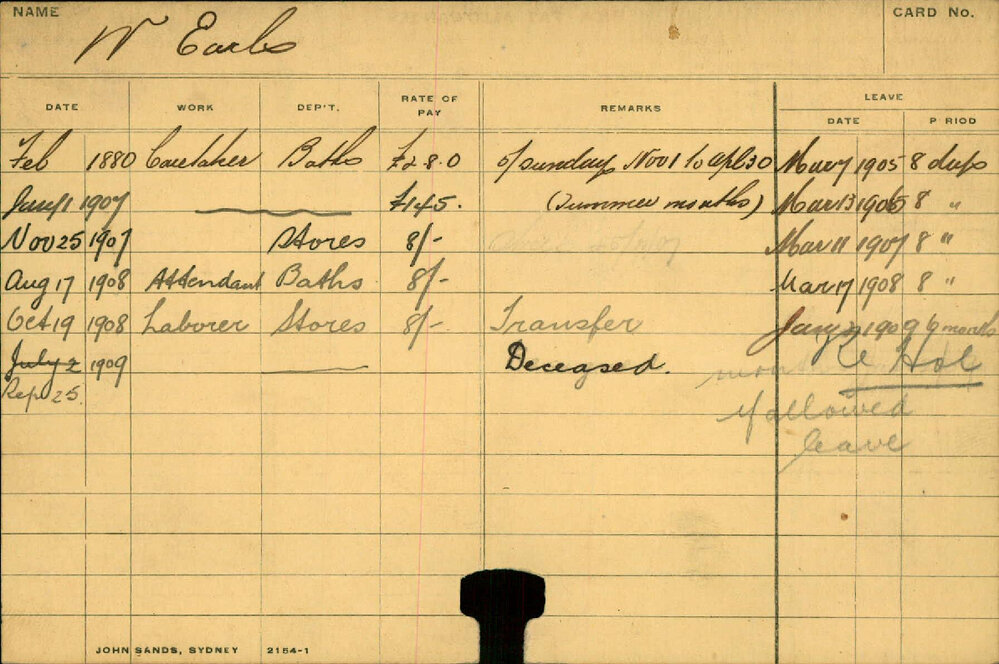 NAME
W Earls
CARD No.
DATE WORK DEP'T. RATE OF PAY REMARKS LEAVE
DATE P RIOD
Feb 1880 Caretaker Baths £2.8.0 Sunday Nov 1 to Apl 30 Mar 7 1905 8 days
Jany 1 1907 £1.4.5. (Summer months) Mar 13 1906 8 "
Nov 25 1907 Stores 8/- Mar 11 1907 8 "
Aug 17 1908 Attendant Baths 8/- Mar 17 1908 8 "
Oct 19 1908 Laborer Stores 8/- Transfer Jany 1909 6 months
July 2 1909 Deceased. Hol
Rep 25.
allowed
leave
JOHN SANDS, SYDNEY 2154-1